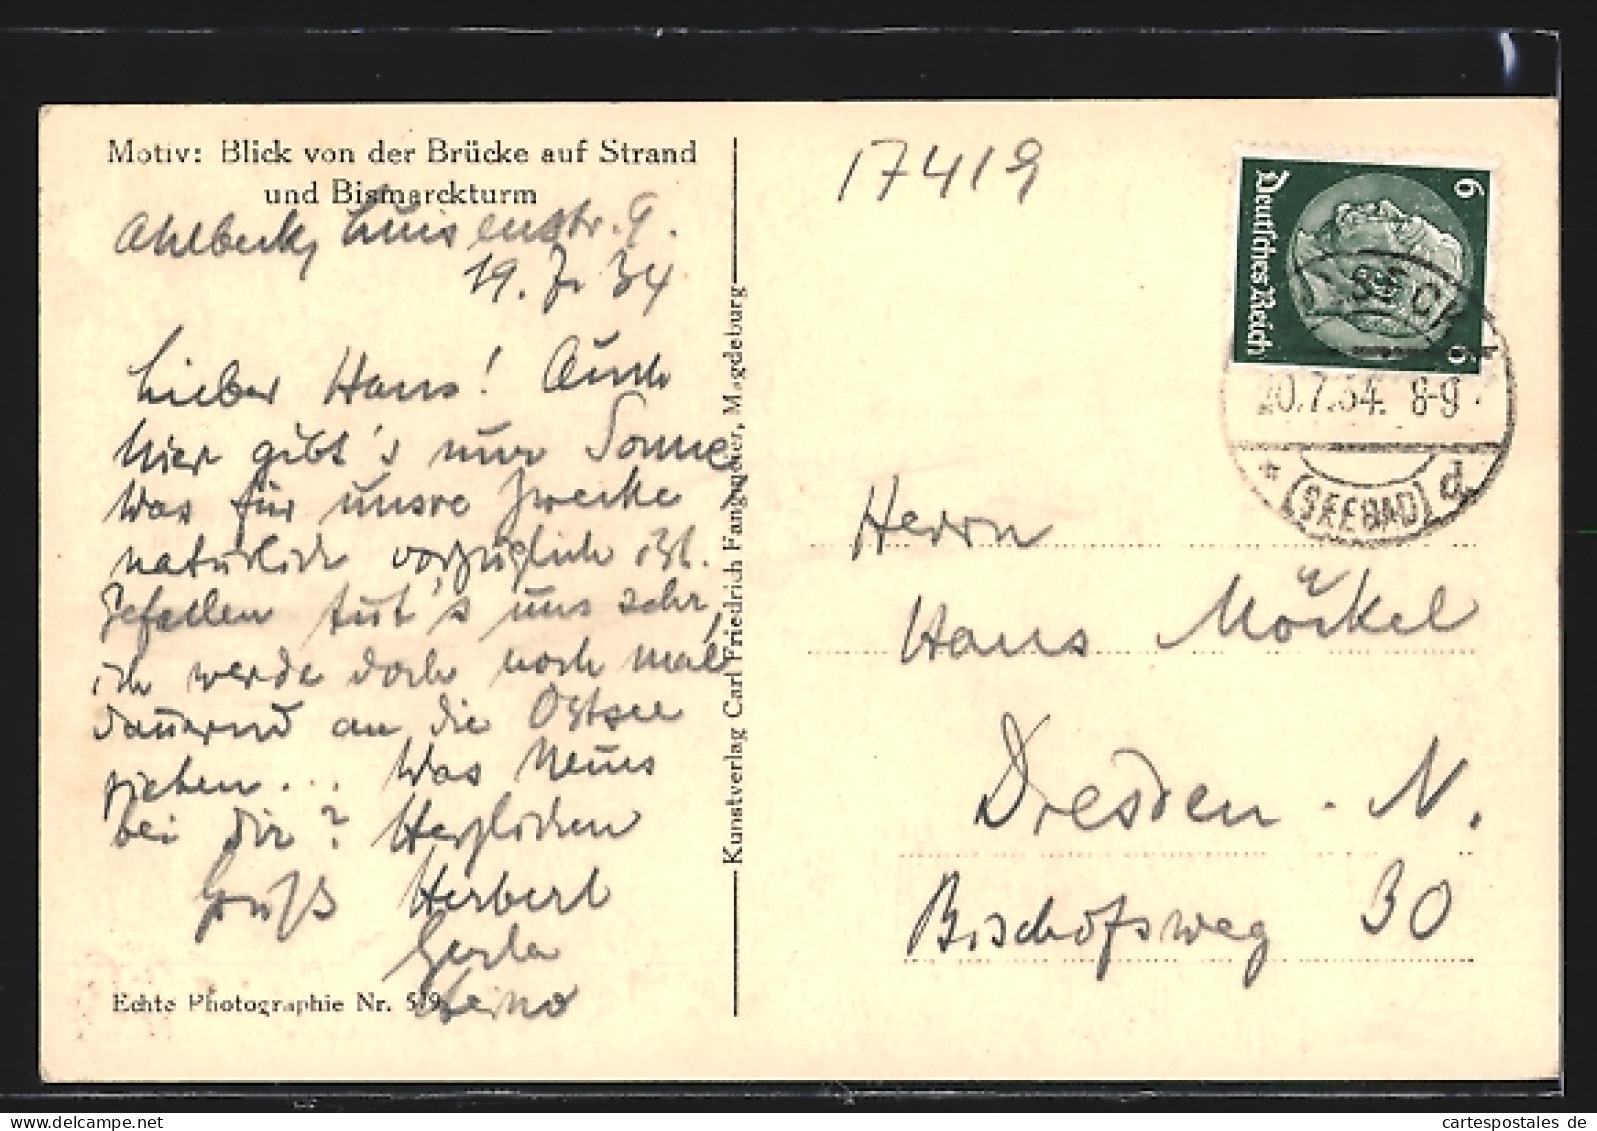 Motiv: Blick von der Brücke auf Strand
und Bismarckturm
Ahlbeck, Luisenstr. 9.
19. 7. 34
Lieber Hans! Auch
hier gibt's nur Sonne,
was für unsre Zwecke
natürlich vorzüglich ist.
Gefallen tut's uns sehr,
ich werde doch noch mal
dauernd an die Ostsee
ziehen... Was Neues
bei dir? Herzlichen
Gruß Herbert
Gerda
Heino
Echte Photographie Nr. 519
Kunstverlag Carl Friedrich Fangmeier, Magdeburg
17419
Deutsches Reich
6
6
20.7.34. 8-9
* (SEEBAD) d
Herrn
Hans Möckel
Dresden-N.
Bischofsweg 30
cartespostales de